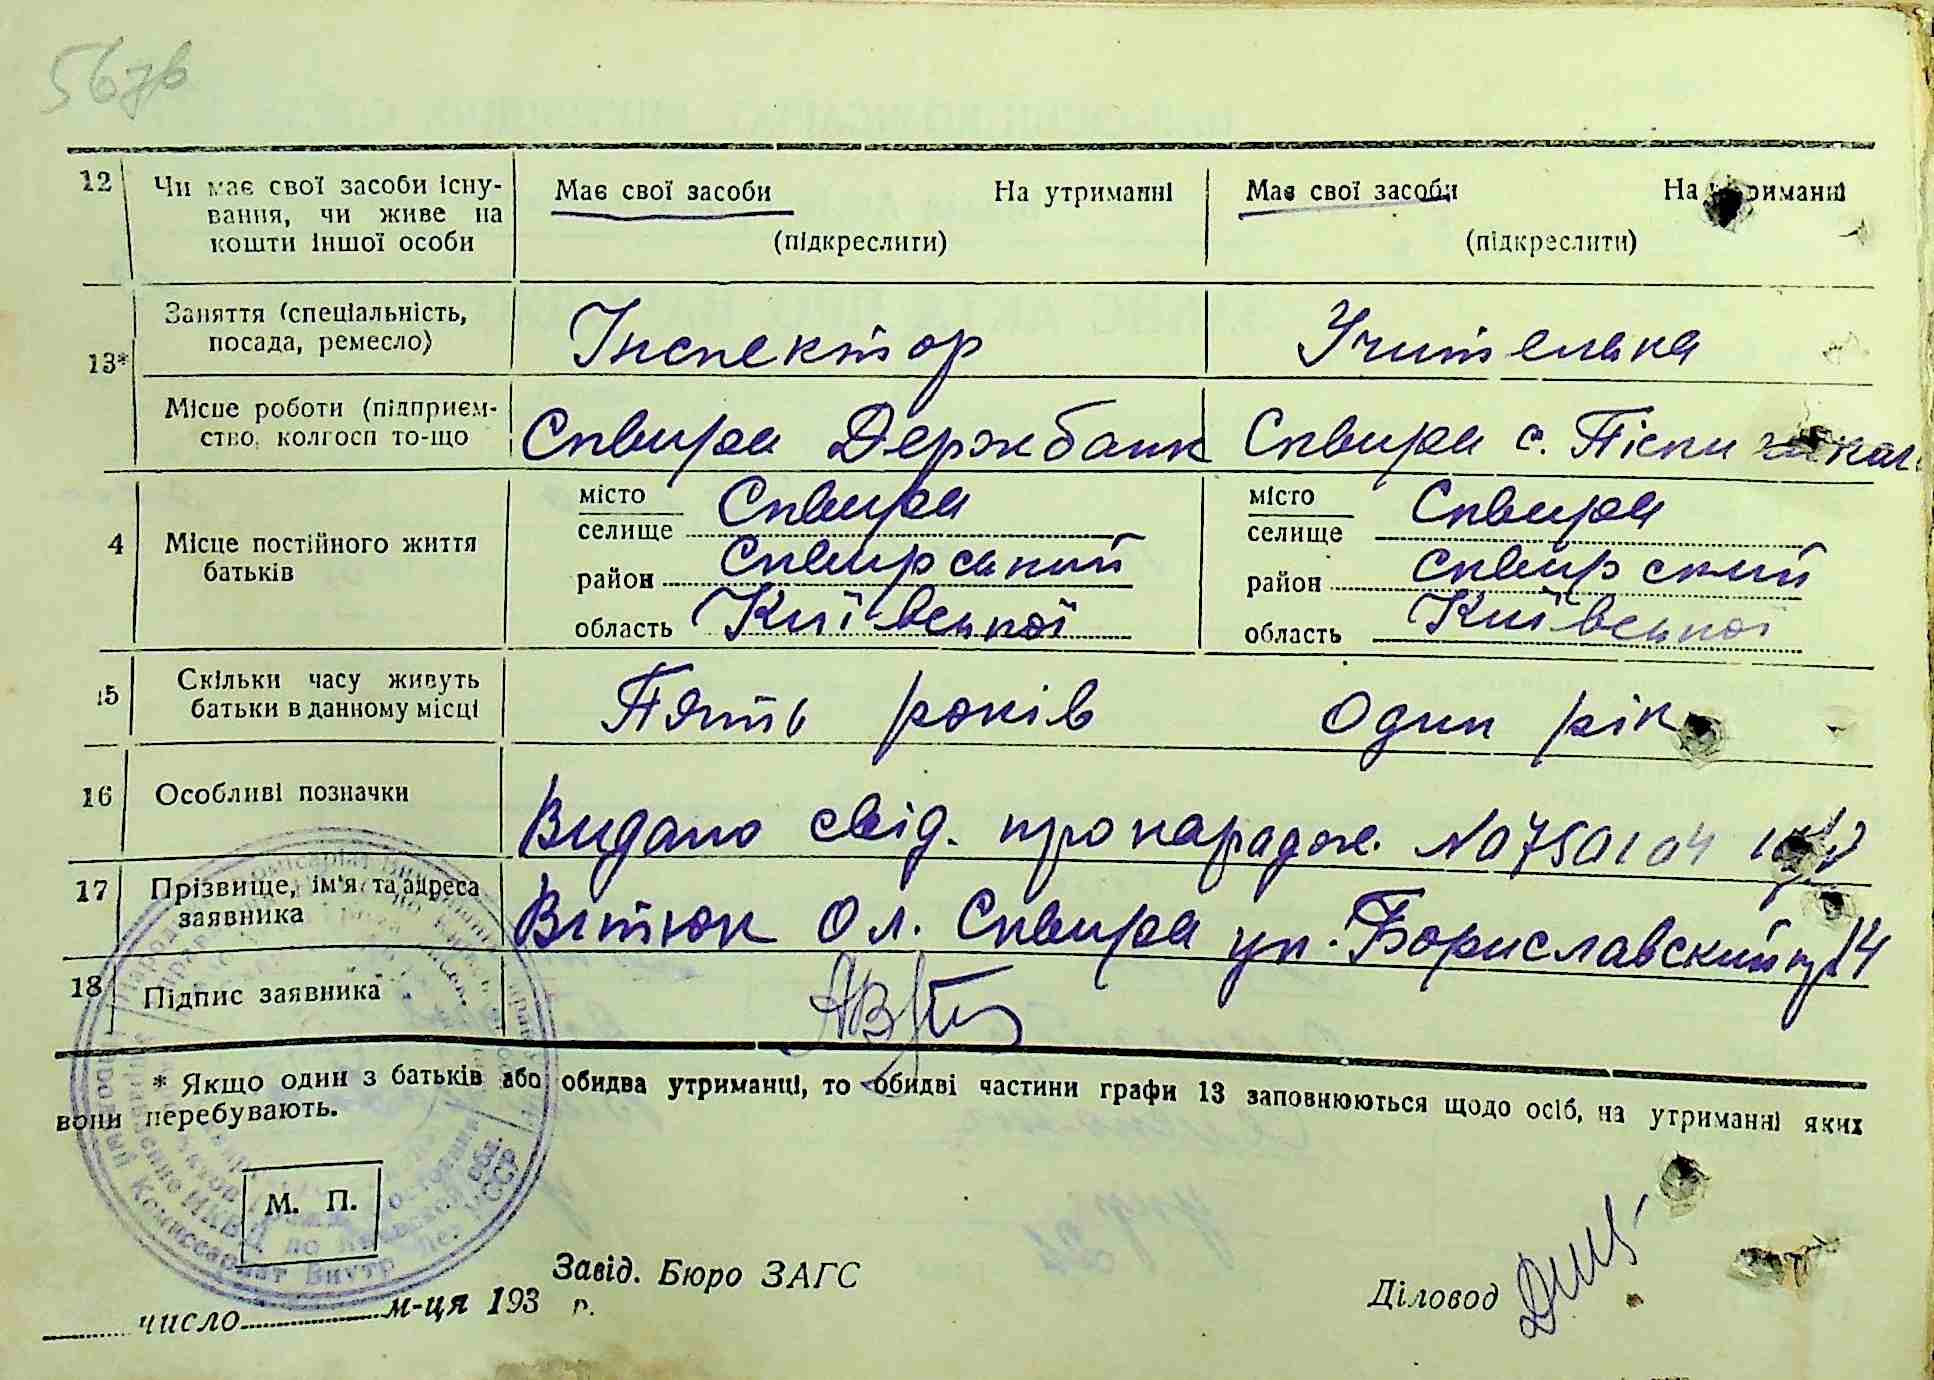 56зв
12 Чи має свої засоби існу-
вання, чи живе на
кошти іншої особи
Має свої засоби На утриманні
(підкреслити)
Має свої засоби На утриманні
(підкреслити)
13*
Заняття (спеціальність,
посада, ремесло)
Інспектор
Учителька
Місце роботи (підприєм-
ство, колгосп то-що
Сквира Держбанк
Сквира с. Піски
4 Місце постійного життя
батьків
місто
селище Сквира
район Сквирський
область Київської
місто
селище Сквира
район Сквирский
область Київської
15 Скільки часу живуть
батьки в данному місці
Пять років
Один рік
16 Особливі позначки
Видано свід. про народж. №0750104
17 Прізвище, ім'я та адреса
заявника
Вітюк Ол. Сквира ул. Бориславский 14
18 Підпис заявника
* Якщо один з батьків або обидва утриманці, то обидві частини графи 13 заповнюються щодо осіб, на утриманні яких
вони перебувають.
М. П.
Завід. Бюро ЗАГС
число м-ця 193 р.
Діловод